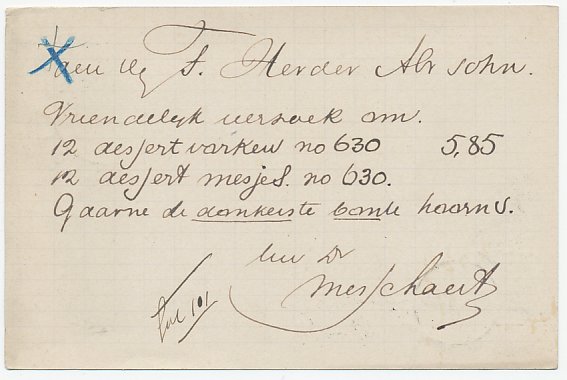 den Hr F. Herder Abr sohn.
Vriendelijk verzoek om.
12 dessert vorken no 630 5,85
12 dessert mesjes. no 630.
Gaarne de donkerste bonte hoorns.
Uw Dr
Messchaert
fol 101